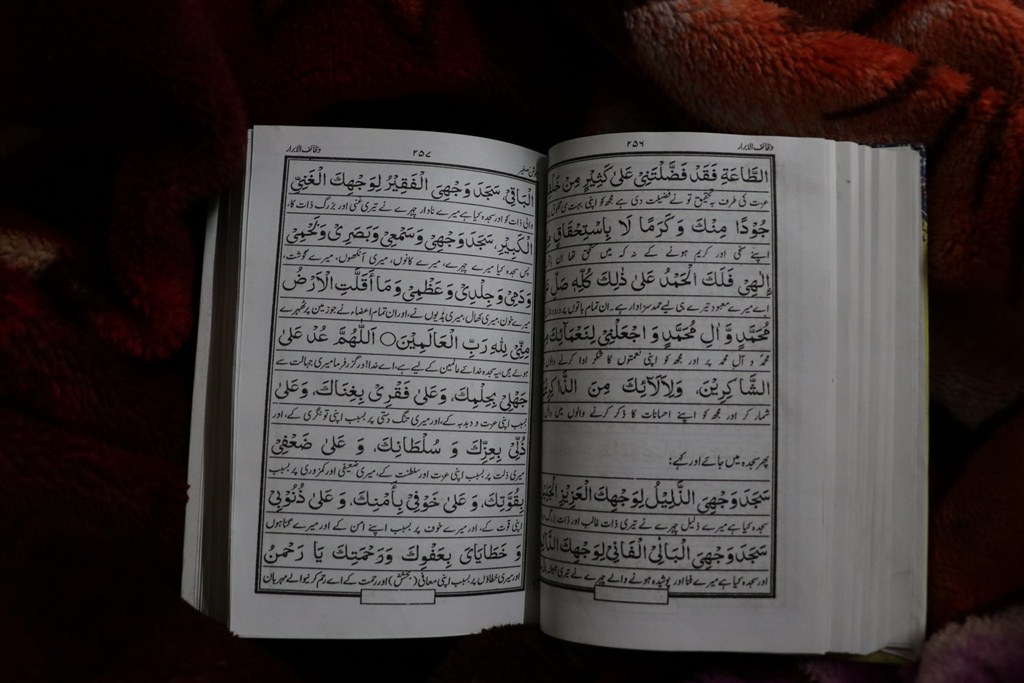 وظائف الابرار
۲۵۶
الطَّاعَةِ فَقَدْ فَضَّلْتَنِيْ عَلىٰ كَثِيْرٍ مِنْ
عزت کی طرف بہ تحقیق تو نے فضیلت دی ہے مجھ کو اپنی بہت سی
جُوْدًا مِنْكَ وَ كَرَمًا لَا بِاسْتِحْقَاقٍ
اپنے سخی اور کریم ہونے کے نہ کہ میں مستحق تھا ان
اِلٰهِيْ فَلَكَ الْحَمْدُ عَلىٰ ذٰلِكَ كُلِّهٖ صَلِّ
اے میرے معبود تیرے ہی لیے حمد سزاوار ہے۔ ان تمام باتوں پر درود
مُحَمَّدٍ وَّ اٰلِ مُحَمَّدٍ وَ اجْعَلْنِيْ لِنَعْمَآئِكَ
محمدؐ و آل محمدؐ پر اور مجھ کو اپنی نعمتوں کا شکر ادا کرنے
الشَّاكِرِيْنَ، وَلِاٰلَآئِكَ مِنَ الذَّاكِرِيْنَ
شمار کر اور مجھ کو اپنے احسانات کا ذکر کرنے والوں میں
پھر سجدہ میں جائے اور کہے:
سَجَدَ وَجْهِيَ الذَّلِيْلُ لِوَجْهِكَ الْعَزِيْزِ
سجدہ کیا ہے میرے ذلیل چہرے نے تیری ذات غالب اور ذات
سَجَدَ وَجْهِيَ الْبَالِيْ الْفَانِيْ لِوَجْهِكَ
اور سجدہ کیا ہے میرے فنا اور پوشیدہ ہونے والے چہرے نے تیری
۲۵۷
وظائف الابرار
الْبَاقِيْ، سَجَدَ وَجْهِيَ الْفَقِيْرُ لِوَجْهِكَ الْغَنِيِّ
والی ذات کو اور سجدہ کیا ہے میرے نادار چہرے نے تیری غنی اور بزرگ ذات کا،
الْكَبِيْرِ، سَجَدَ وَجْهِيْ وَسَمْعِيْ وَبَصَرِيْ وَلَحْمِيْ
پس سجدہ کیا میرے چہرے، میرے کانوں، میری آنکھوں، میرے گوشت،
وَدَمِيْ وَ جِلْدِيْ وَ عَظْمِيْ وَ مَا أَقَلَّتِ الْاَرْضُ
میرے خون، میری کھال، میری ہڈیوں نے، اور ان تمام اعضاء نے جو زمین پر ٹھہرے
مِنِّيْ لِلّٰهِ رَبِّ الْعَالَمِيْنَ○ اَللّٰهُمَّ عُدْ عَلىٰ
ہوئے ہیں، یہ سجدہ خدائے عالمین کے لیے ہے، اے خدا! درگزر فرما میری جہالت سے
جَهْلِيْ بِحِلْمِكَ، وَعَلىٰ فَقْرِيْ بِغِنَاكَ، وَعَلىٰ
بسبب اپنی عزت و دبدبہ کے، اور میری تنگ دستی پر بسبب اپنی تونگری کے، اور
ذُلِّيْ بِعِزِّكَ وَ سُلْطَانِكَ، وَ عَلىٰ ضَعْفِيْ
میری ذلت پر بسبب اپنی عزت اور سلطنت کے، میری ضعیفی اور کمزوری پر بسبب
بِقُوَّتِكَ، وَ عَلىٰ خَوْفِيْ بِأَمْنِكَ، وَ عَلىٰ ذُنُوْبِيْ
اپنی قوت کے، اور میرے خوف پر بسبب اپنے امن کے اور میرے گناہوں
وَ خَطَايَايَ بِعَفْوِكَ وَرَحْمَتِكَ يَا رَحْمٰنُ
اور میری خطاؤں پر بسبب اپنی معافی (بخشش) اور رحمت کے اے رحم کرنیوالے مہربان